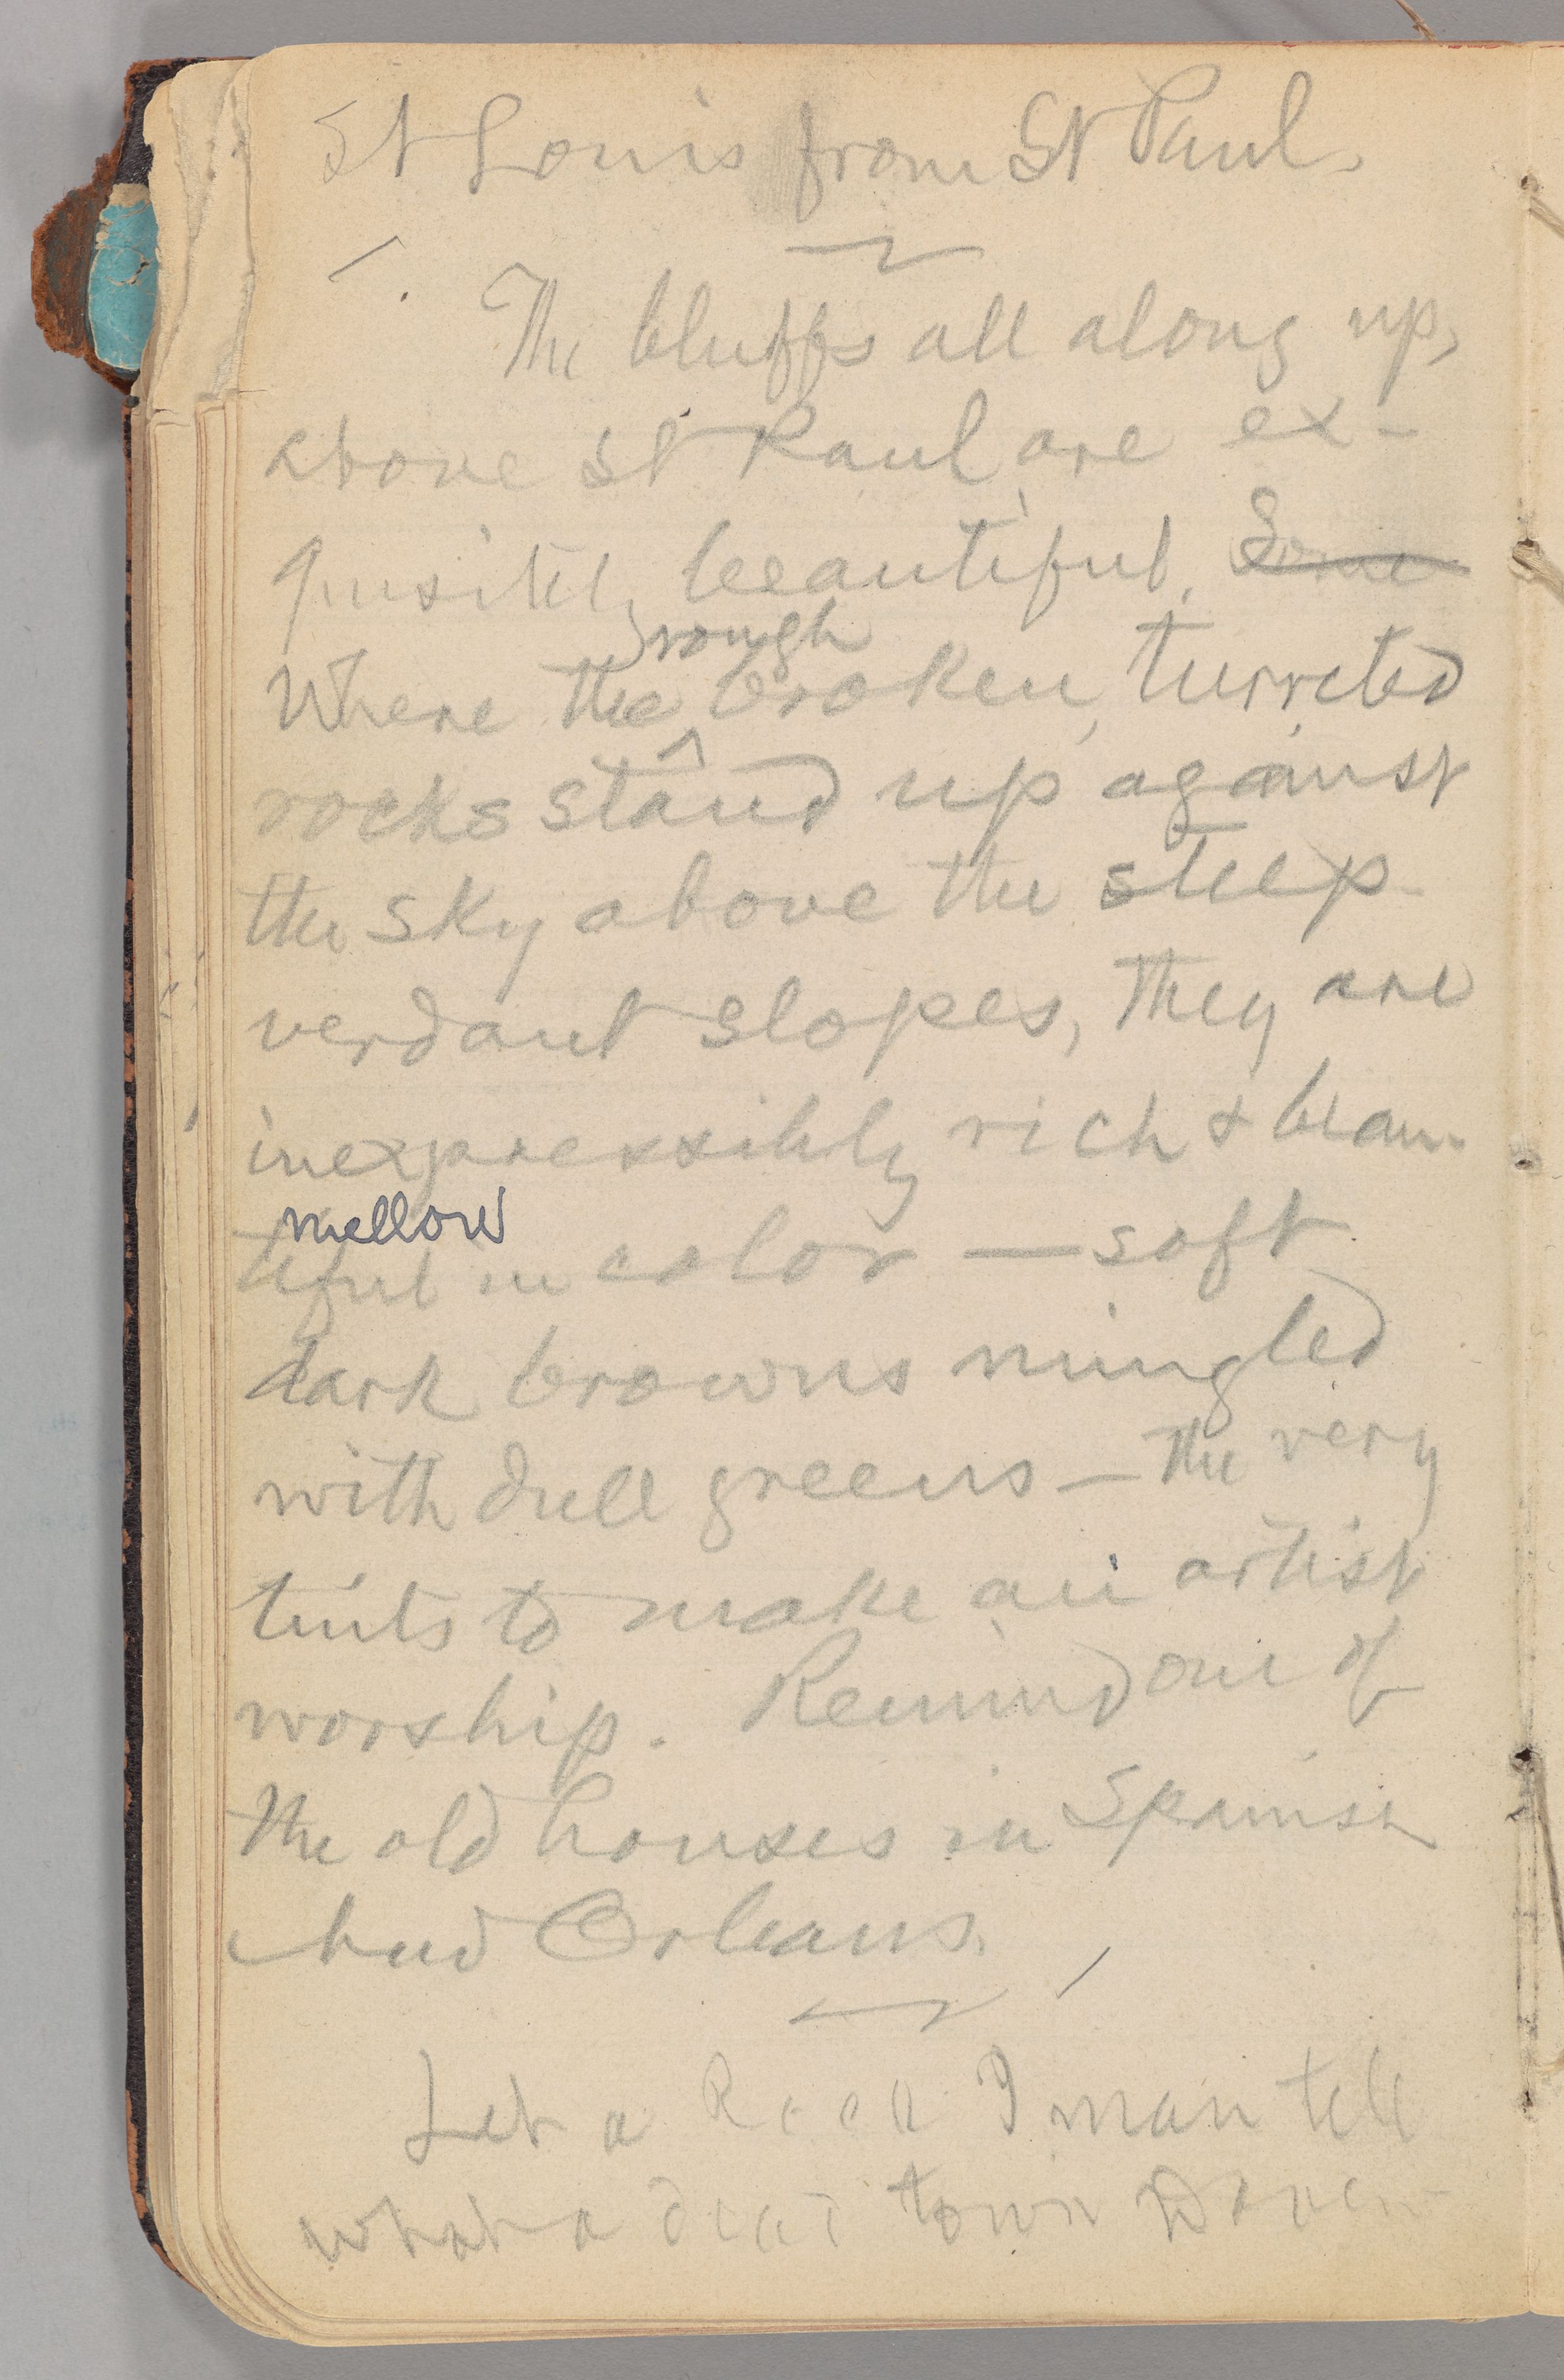 St Louis from St Paul.
The bluffs all along up,
above St Paul, are ex-
quisitely beautiful. Some
rough
Where the broken, turreted
rocks stand up against
the sky above the steep
verdant slopes, they are
inexpressibly rich & beau-
mellow
tiful in color — soft
dark browns mingled
with dull greens — the very
tints to make an artist
worship. Remind one of
the old houses in Spanish
Orleans.
Let a Rock I man tell
what a dead town Daven